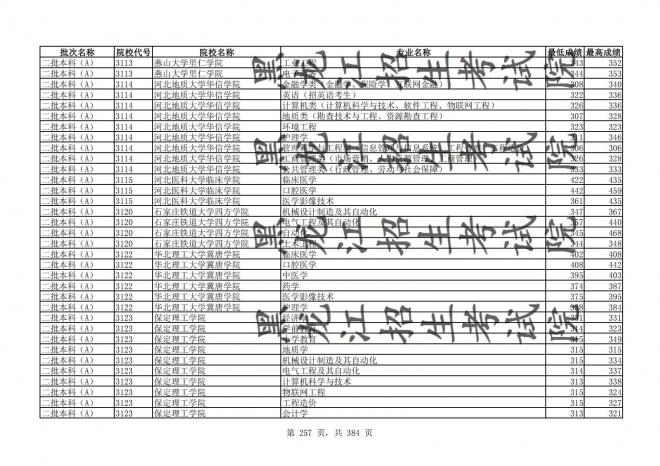 批次名称 院校代号 院校名称 专业名称 最低成绩 最高成绩
二批本科（A） 3113 燕山大学里仁学院 工业工程 343 352
二批本科（A） 3113 燕山大学里仁学院 电子 344 353
二批本科（A） 3114 河北地质大学华信学院 金融学类（金融学、保险学、互联网金融） 308 340
二批本科（A） 3114 河北地质大学华信学院 英语（招英语考生） 322 336
二批本科（A） 3114 河北地质大学华信学院 计算机类（计算机科学与技术、软件工程、物联网工程） 326 336
二批本科（A） 3114 河北地质大学华信学院 地质类（勘查技术与工程、资源勘查工程） 307 328
二批本科（A） 3114 河北地质大学华信学院 环境工程 323 323
二批本科（A） 3114 河北地质大学华信学院 护理学 346
二批本科（A） 3114 河北地质大学华信学院 306 306
二批本科（A） 3114 河北地质大学华信学院 工商管理类（市场营销、人力资源管理、物流管理） 326 328
二批本科（A） 3114 河北地质大学华信学院 公共管理类（行政管理、劳动与社会保障） 333 333
二批本科（A） 3115 河北医科大学临床学院 临床医学 422 435
二批本科（A） 3115 河北医科大学临床学院 口腔医学 442 459
二批本科（A） 3115 河北医科大学临床学院 医学影像技术 361 435
二批本科（A） 3120 石家庄铁道大学四方学院 机械设计制造及其自动化 347 367
二批本科（A） 3120 石家庄铁道大学四方学院 电气工程及其自动化 357 440
二批本科（A） 3120 石家庄铁道大学四方学院 自动化 345 468
二批本科（A） 3120 石家庄铁道大学四方学院 土木工程 344 348
二批本科（A） 3122 华北理工大学冀唐学院 临床医学 402 408
二批本科（A） 3122 华北理工大学冀唐学院 口腔医学 408 442
二批本科（A） 3122 华北理工大学冀唐学院 中医学 395 403
二批本科（A） 3122 华北理工大学冀唐学院 药学 374 387
二批本科（A） 3122 华北理工大学冀唐学院 医学影像技术 375 395
二批本科（A） 3122 华北理工大学冀唐学院 护理学 358 384
二批本科（A） 3123 保定理工学院 经济学 331
二批本科（A） 3123 保定理工学院 学前教育 314 323
二批本科（A） 3123 保定理工学院 小学教育 331 349
二批本科（A） 3123 保定理工学院 地质学 315 315
二批本科（A） 3123 保定理工学院 机械设计制造及其自动化 315 334
二批本科（A） 3123 保定理工学院 电气工程及其自动化 314 337
二批本科（A） 3123 保定理工学院 计算机科学与技术 313 338
二批本科（A） 3123 保定理工学院 物联网工程 315 324
二批本科（A） 3123 保定理工学院 工程造价 315 327
二批本科（A） 3123 保定理工学院 会计学 313 321
黑龙江招生考试院
黑龙江招生考试院
黑龙江招生考试院
第 257 页，共 384 页